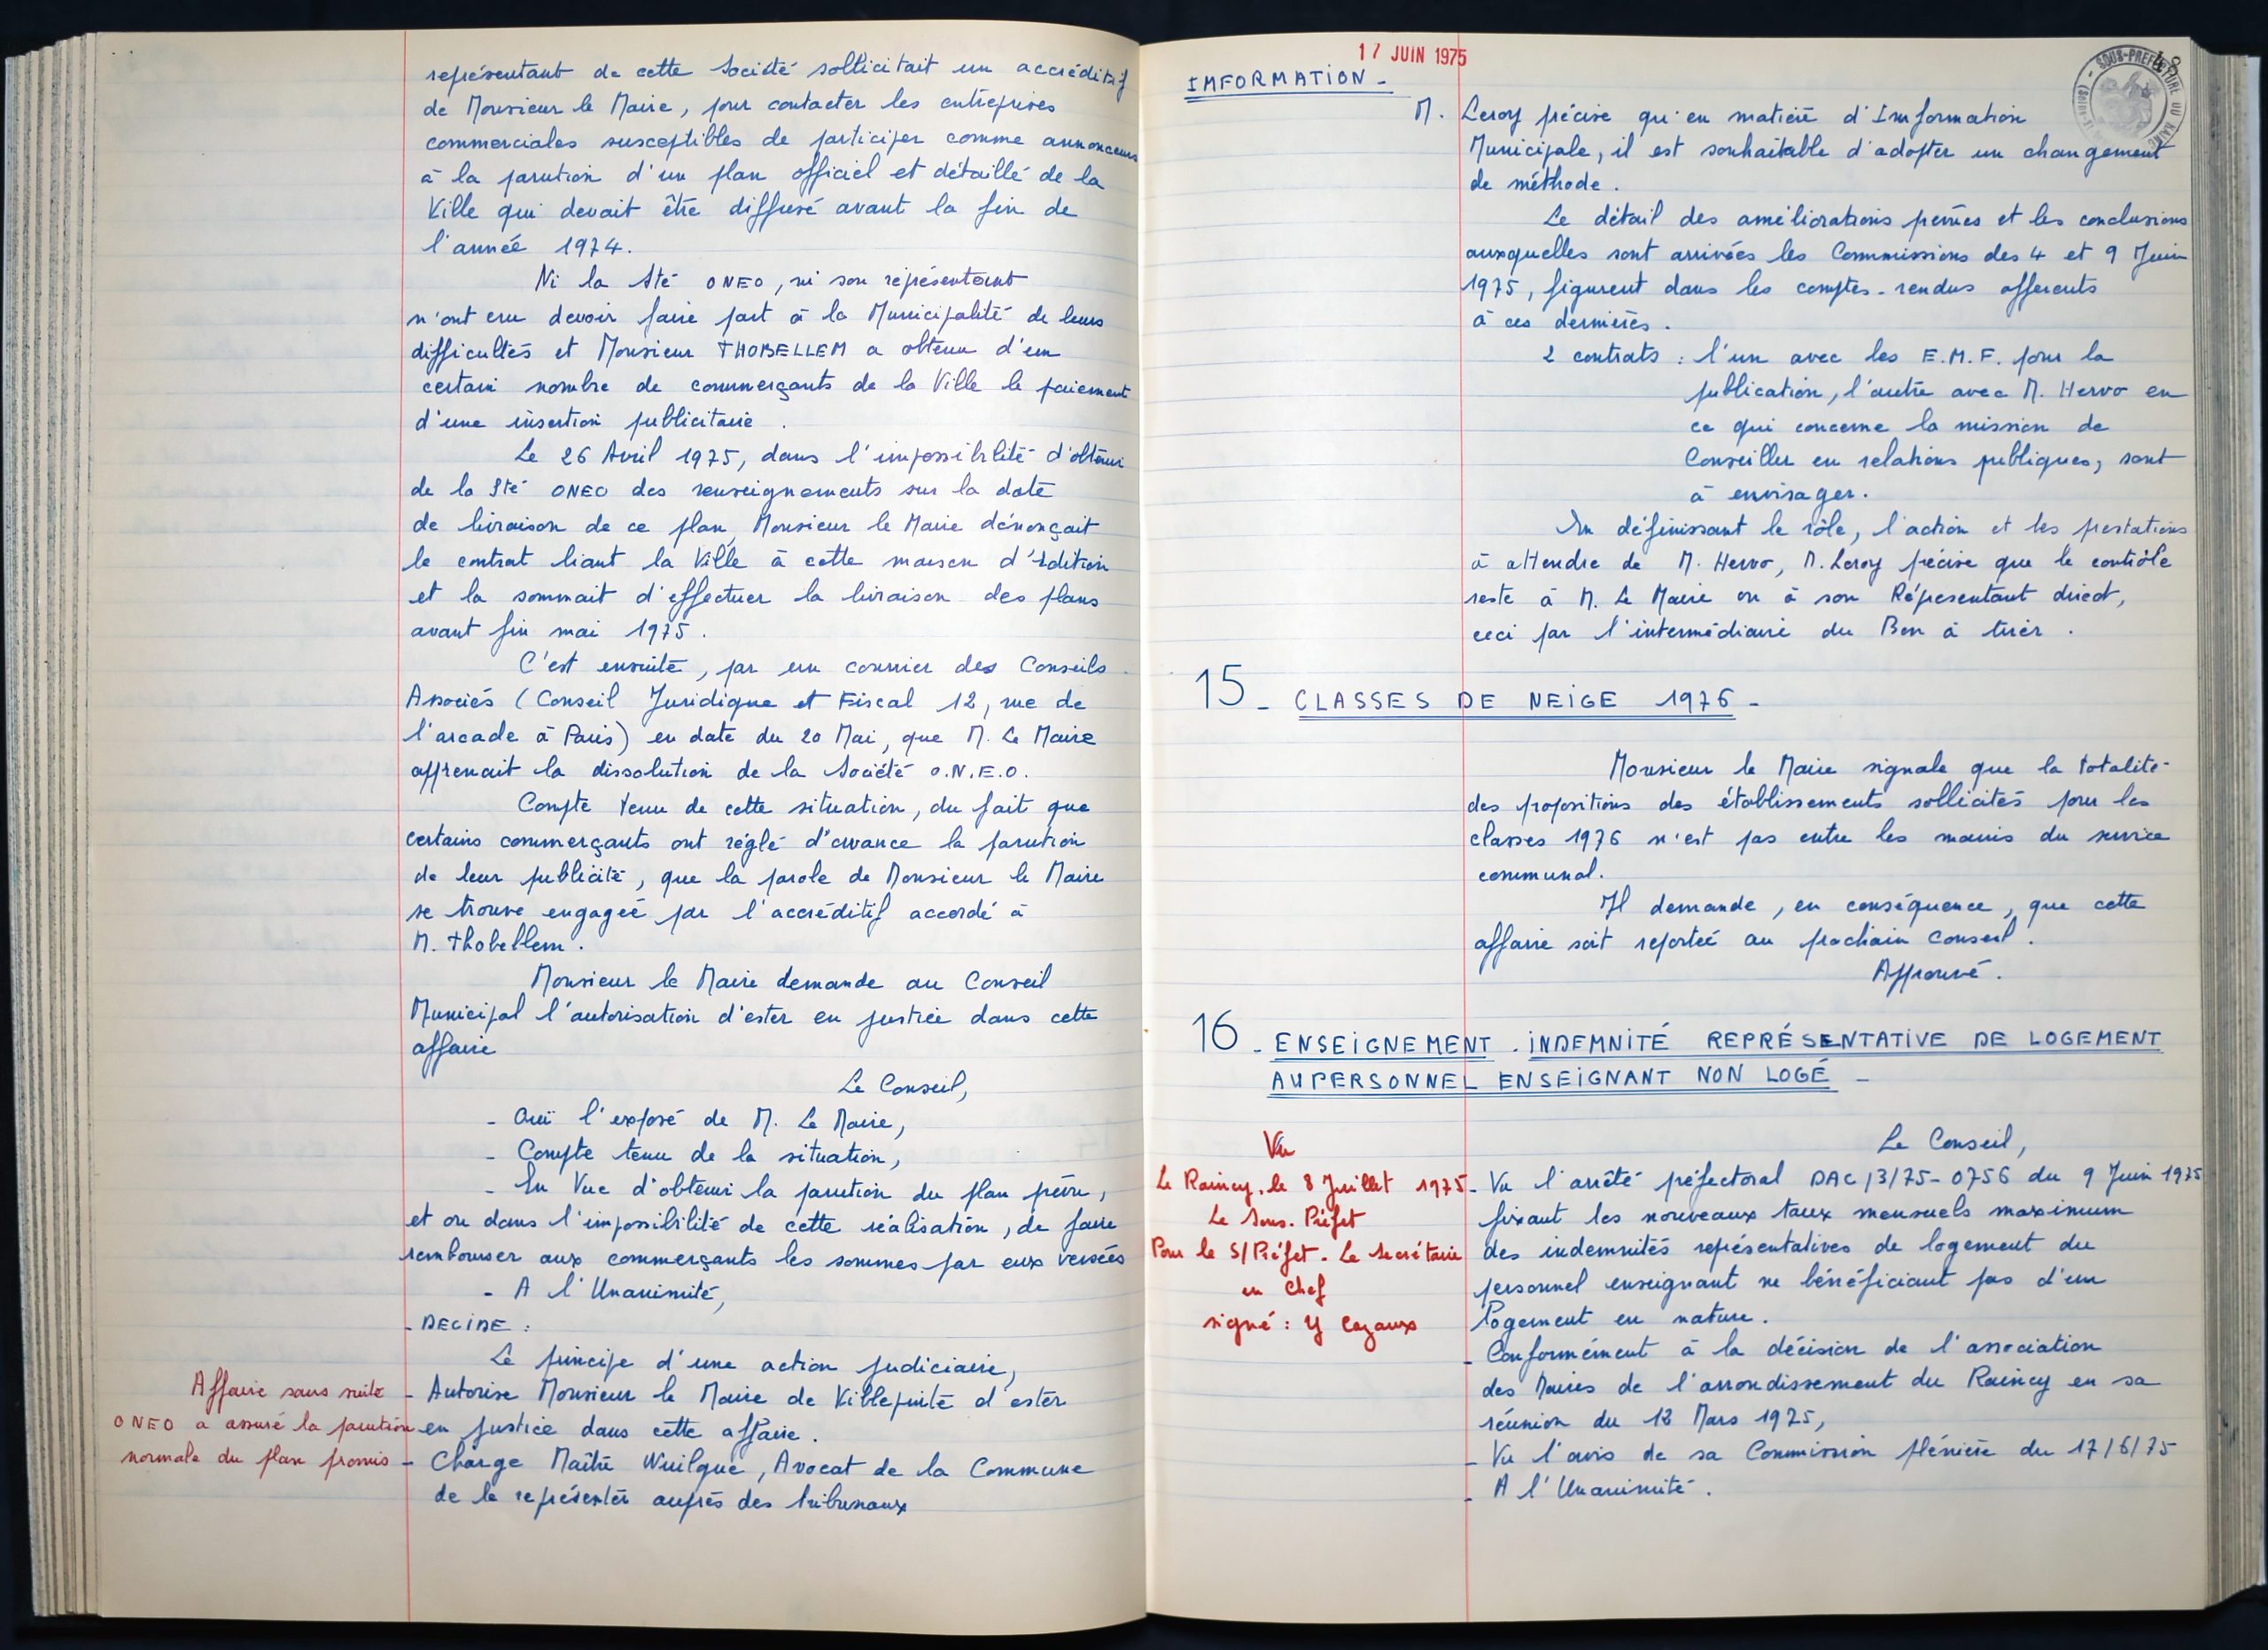 représentant de cette Société sollicitait un accréditif
de Monsieur le Maire, pour contacter les entreprises
commerciales susceptibles de participer comme annonceurs
à la parution d'un plan officiel et détaillé de la
Ville qui devait être diffusé avant la fin de
l'année 1974.
Ni la Sté ONEO, ni son représentant
n'ont cru devoir faire part à la Municipalité de leurs
difficultés et Monsieur THOBELLEM a obtenu d'un
certain nombre de commerçants de la Ville le paiement
d'une insertion publicitaire.
Le 26 Avril 1975, dans l'impossibilité d'obtenir
de la Sté ONEO des renseignements sur la date
de livraison de ce plan, Monsieur le Maire dénonçait
le contrat liant la Ville à cette maison d'édition
et la sommait d'effectuer la livraison des plans
avant fin mai 1975.
C'est ensuite, par un courrier des Conseils
Associés (Conseil Juridique et Fiscal 12, rue de
l'arcade à Paris) en date du 20 Mai, que M. Le Maire
apprenait la dissolution de la Société O.N.E.O.
Compte tenu de cette situation, du fait que
certains commerçants ont réglé d'avance la parution
de leur publicité, que la parole de Monsieur le Maire
se trouve engagée par l'accréditif accordé à
M. Thobellem.
Monsieur le Maire demande au Conseil
Municipal l'autorisation d'ester en justice dans cette
affaire
Le Conseil,
- Ouï l'exposé de M. Le Maire,
- Compte tenu de la situation,
- En Vue d'obtenir la parution du plan prévu,
et ou dans l'impossibilité de cette réalisation, de faire
rembourser aux commerçants les sommes par eux versées
- A l'Unanimité,
- DECIDE :
Le principe d'une action judiciaire,
- Autorise Monsieur le Maire de Villepinte d'ester
en justice dans cette affaire.
- Charge Maître Wuilque, Avocat de la Commune
de le représenter auprès des tribunaux
Affaire sans suite
ONEO a assuré la parution
normale du plan promis
17 JUIN 1975
48
SOUS-PREFECTURE DU RAINCY
INFORMATION -
M. Leroy précise qu'en matière d'Information
Municipale, il est souhaitable d'adopter un changement
de méthode.
Le détail des améliorations prévues et les conclusions
auxquelles sont arrivées les Commissions des 4 et 9 Juin
1975, figurent dans les comptes-rendus afférents
à ces dernières.
2 contrats : l'un avec les E.M.F. pour la
publication, l'autre avec M. Hervo en
ce qui concerne la mission de
Conseiller en relations publiques, sont
à envisager.
En définissant le rôle, l'action et les prestations
à attendre de M. Hervo, M. Leroy précise que le contrôle
reste à M. Le Maire ou à son Réprésentant direct,
ceci par l'intermédiaire du Bon à tirer.
15 - CLASSES DE NEIGE 1976 -
Monsieur le Maire signale que la totalité
des propositions des établissements sollicités pour les
classes 1976 n'est pas entre les mains du service
communal.
Il demande, en conséquence, que cette
affaire soit reportée au prochain Conseil.
Approuvé.
16 - ENSEIGNEMENT. INDEMNITÉ REPRÉSENTATIVE DE LOGEMENT
AU PERSONNEL ENSEIGNANT NON LOGÉ -
Le Conseil,
- Vu l'arrêté préfectoral DAC/3/75-0756 du 9 Juin 1975
fixant les nouveaux taux mensuels maximum
des indemnités représentatives de logement du
personnel enseignant ne bénéficiant pas d'un
logement en nature.
- Conformément à la décision de l'association
des Maires de l'arrondissement du Raincy en sa
réunion du 12 Mars 1975,
- Vu l'avis de sa Commission plénière du 17/6/75
- A l'Unanimité.
Vu
Le Raincy, le 8 Juillet 1975
Le Sous-Préfet
Pour le S/Préfet. Le Secrétaire
en Chef
signé : Y Cazaux